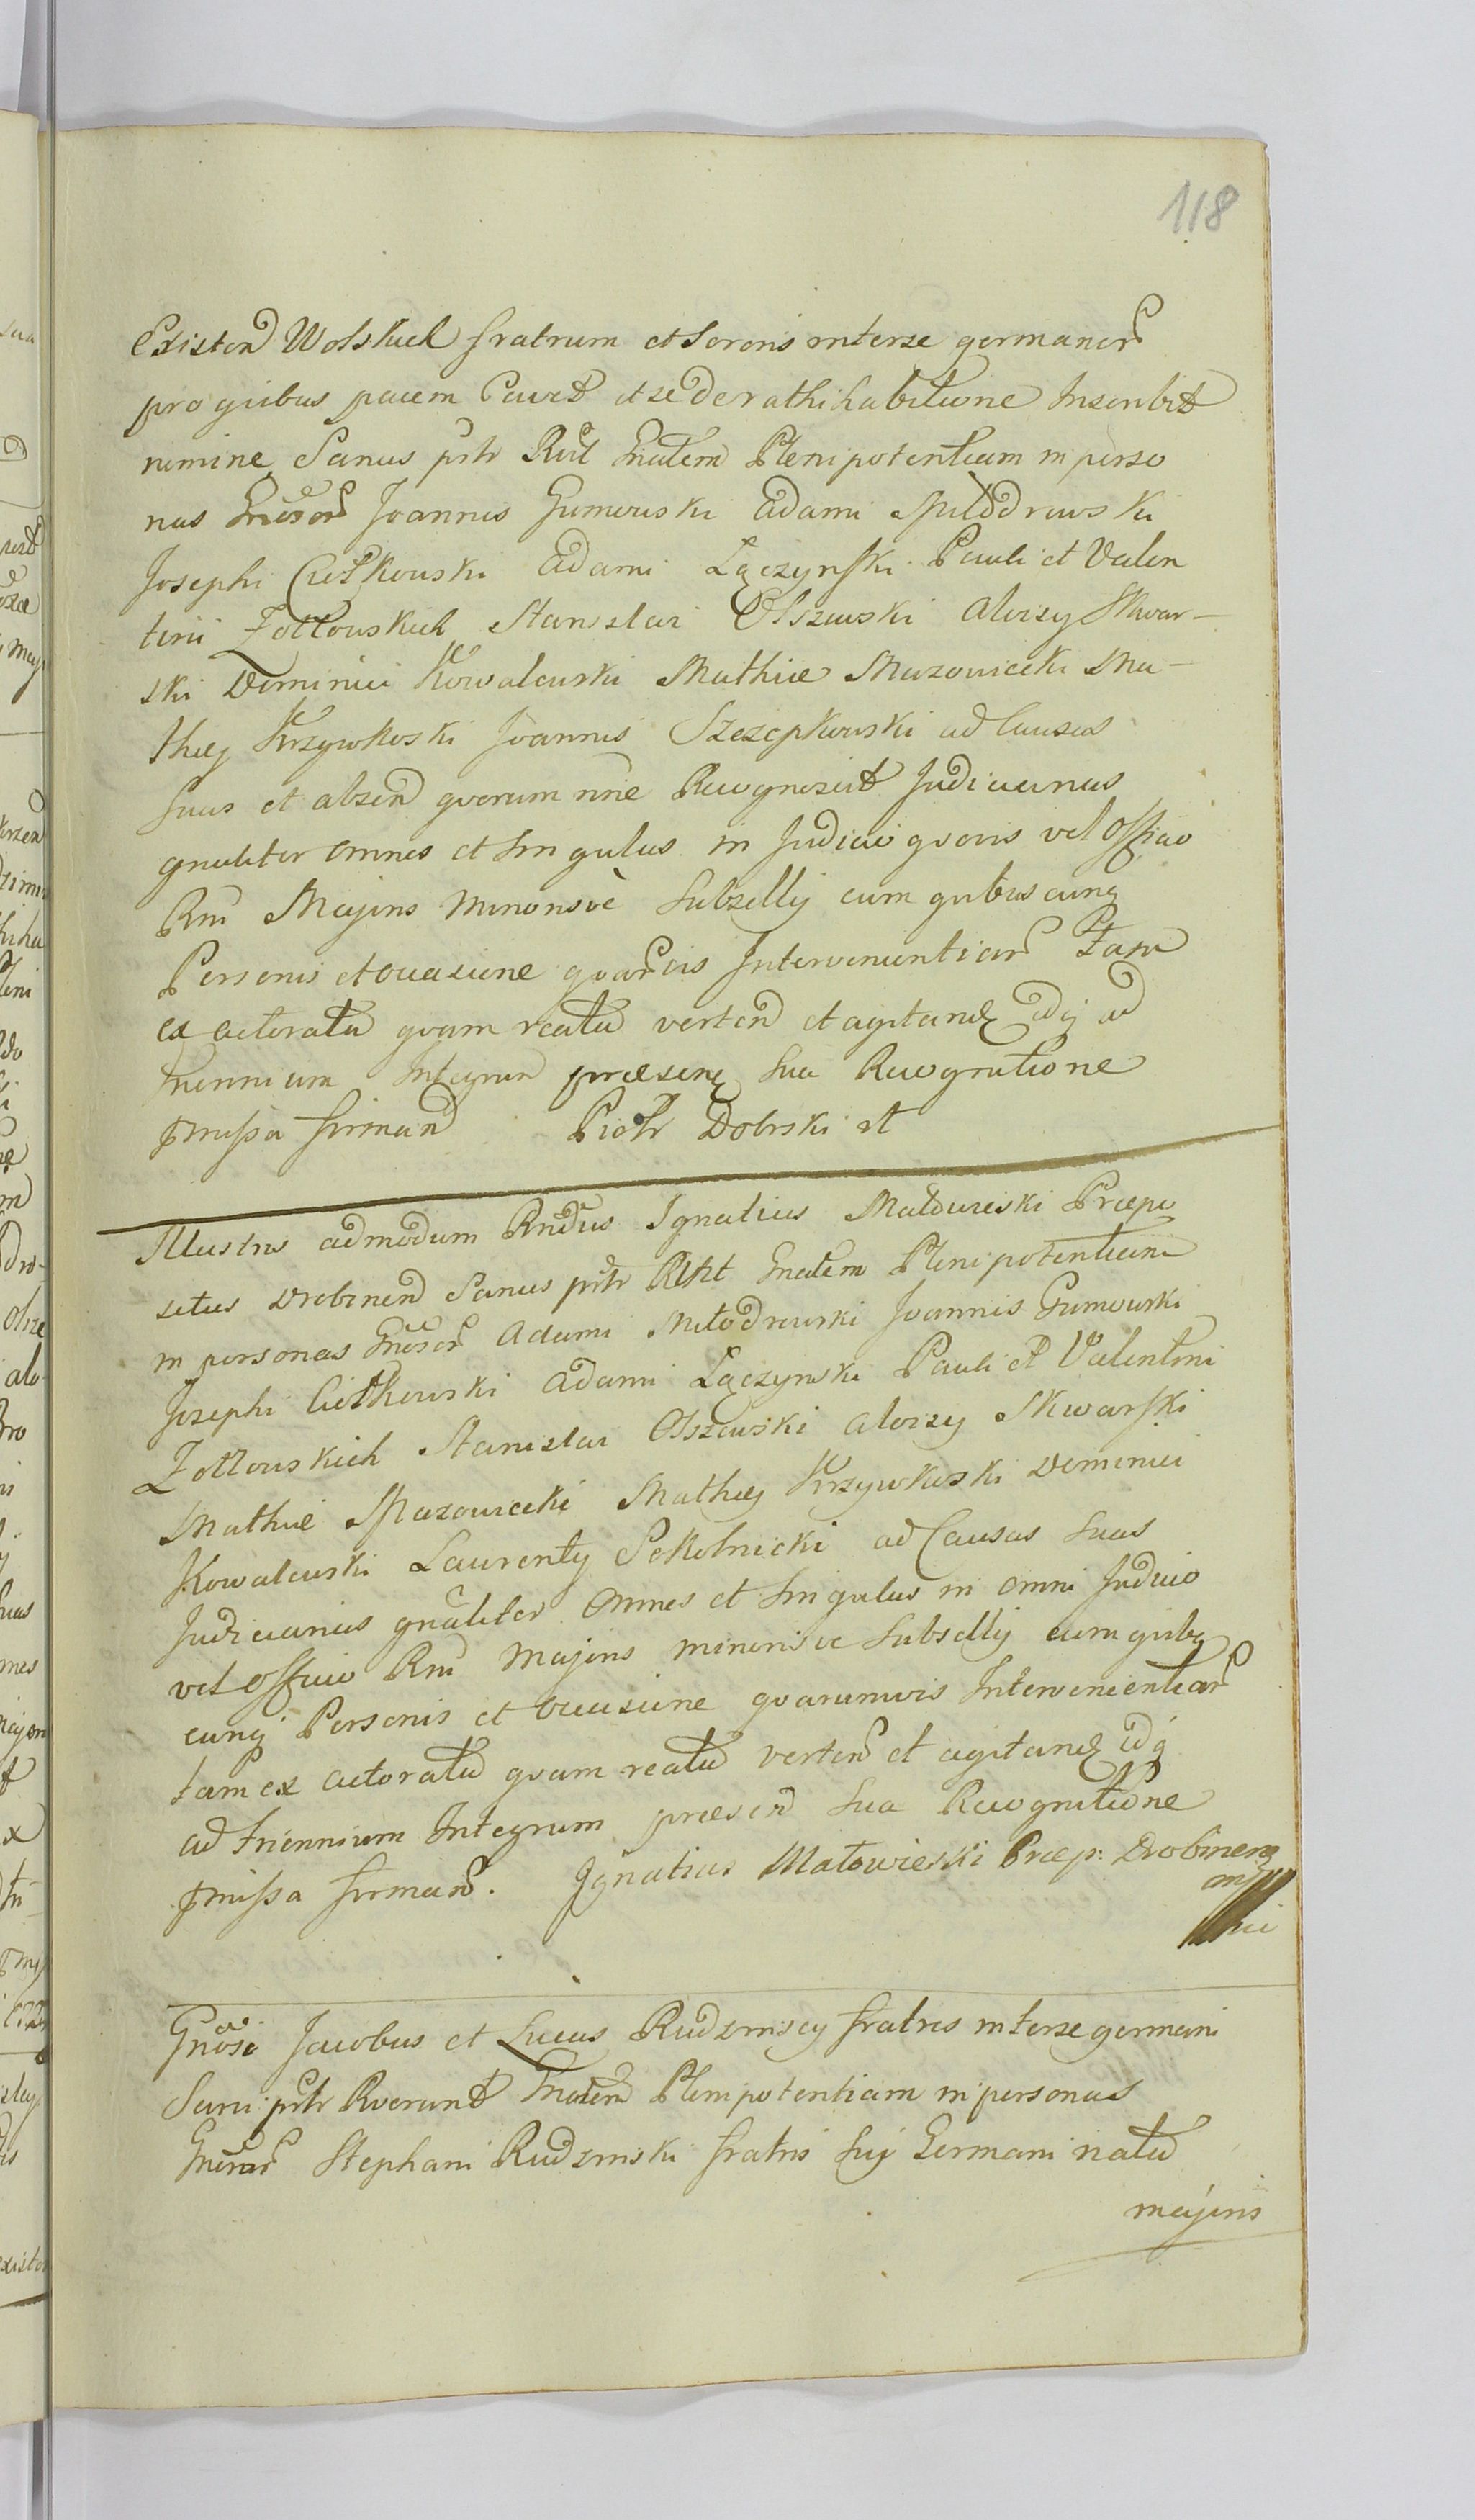 118
Existen Wolskich fratrum et Sororis interse germanor
pro quibus pacem Cavet et se de rathihabitione Inscribit
nomine Sanus pstr Rcit Gnalem Plenipotentiam in perso
nas Gnosor Joannis Gumowski Adami Młodzdrowski
Josephi Ciołkowski Adami Łączynski Pauli et Valen
tini Żółtowskich Stanislai Olszewski Aloizy Skwar-
ski Dominici Kowalewski Mathiæ Mazowiecki Ma-
thiæ Krzywkoski Joannis Szczepkowski ad Causas
Suas et absen qvorum nne Recognoscit Judiciarias
gnaliter omnes et Singulas in Judicio qvovis vel Officio
Rni Majoris Minorisve Subsellij cum quibuscunq
Personis et occasione qvarvis Intervenientiar Tam
ex actoratu qvam reatu verten et agitan idq ad
Triennium Integrum præsen Sua Recognitione
pmissa firman Piotr Dobrski
Illustris admodum Rndus Ignatius Małowieski Præpo
situs Drobinen Sanus pstr Rcit Gnalem Plenipotentiam
in personas Gnosor Adami Młodrowski Joannis Gumowski
Josephi Ciołkowski Adami Łączynski Pauli et Valentini
Żółtowskich Stanislai Olszewski Aloizy Skwarski
Mathiæ Mazowiecki Mathiæ Krzywkoski Dominici
Kowalewski Laurenty Sokolnicki ad Causas Suas
Judiciarias gnaliter Omnes et Singulas in omni Judicio
vel Officio Rni Majoris minorisve Subsellij cum quibus
cunq Personis et occasione qvarumvis Intervenientiar
tam ex actoratu qvam reatu verten et agitan idq
ad Triennium Integrum præsen Sua Recognitione
pmissa firman. Ignatius Małowieski Præp: Drobinen
mp
Gnosi Jacobus et Lucas Rudzinscy fratres interse germani
Sani pstr Rverunt Gnalem Plenipotentiam in personas
Gnosor Stephani Rudzinski fratris Sui Germani natu
majoris